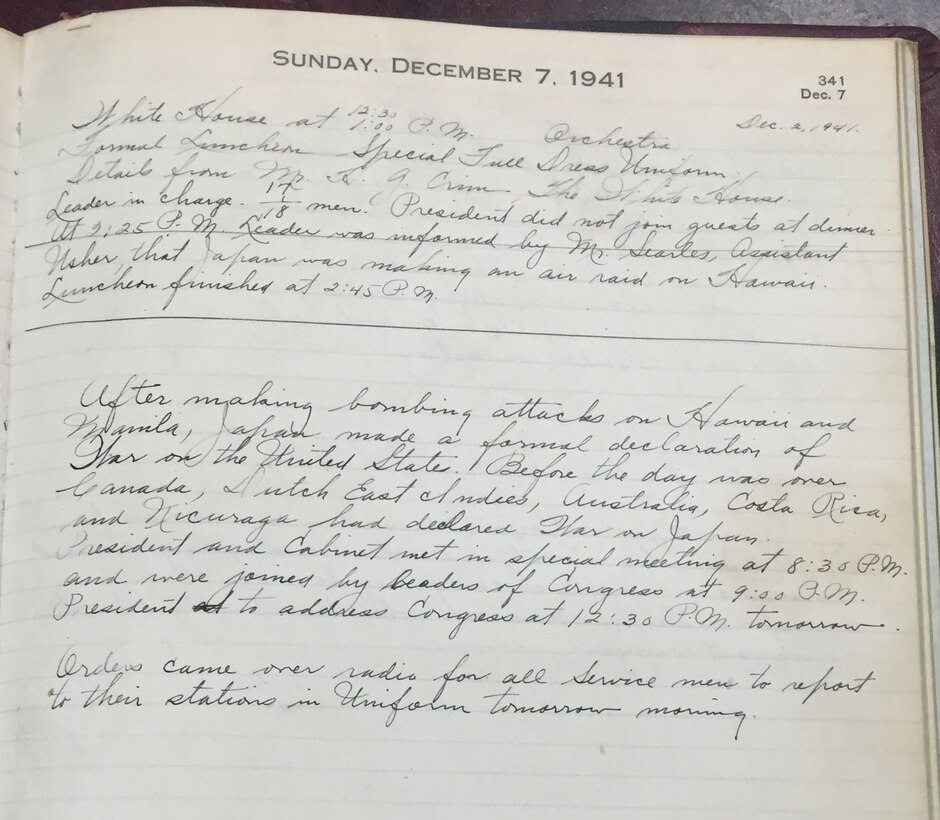 SUNDAY, DECEMBER 7, 1941
341
Dec. 7
White House at 12:30 1:00 P.M. Orchestra Dec. 2, 1941.
Formal Luncheon Special Full Dress Uniform.
Details from Mr. H. G. Crim, The White House.
Leader in charge. 17/18 men. President did not join guests at dinner.
At 2:25 P.M. Leader was informed by Mr. Searles, Assistant
Usher, that Japan was making an air raid on Hawaii.
Luncheon finished at 2:45 P.M.
After making bombing attacks on Hawaii and
Manila, Japan made a formal declaration of
War on the United States. Before the day was over
Canada, Dutch East Indies, Australia, Costa Rica,
and Nicuraga had declared War on Japan.
President and Cabinet met in special meeting at 8:30 P.M.
and were joined by leaders of Congress at 9:00 P.M.
President to address Congress at 12:30 P.M. tomorrow.
Orders came over radio for all Service men to report
to their stations in Uniform tomorrow morning.